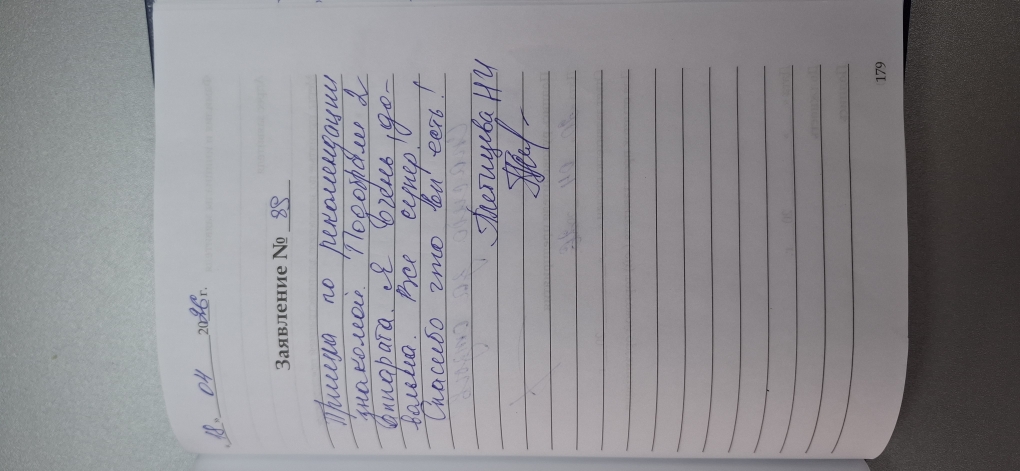 "18" 04 2026 г.
Заявление № 85
Пришла по рекомендации
знакомой. Подобрали 2
аппарата. Я очень до-
вольна. Все супер!
Спасибо что вы есть!
НИ
179